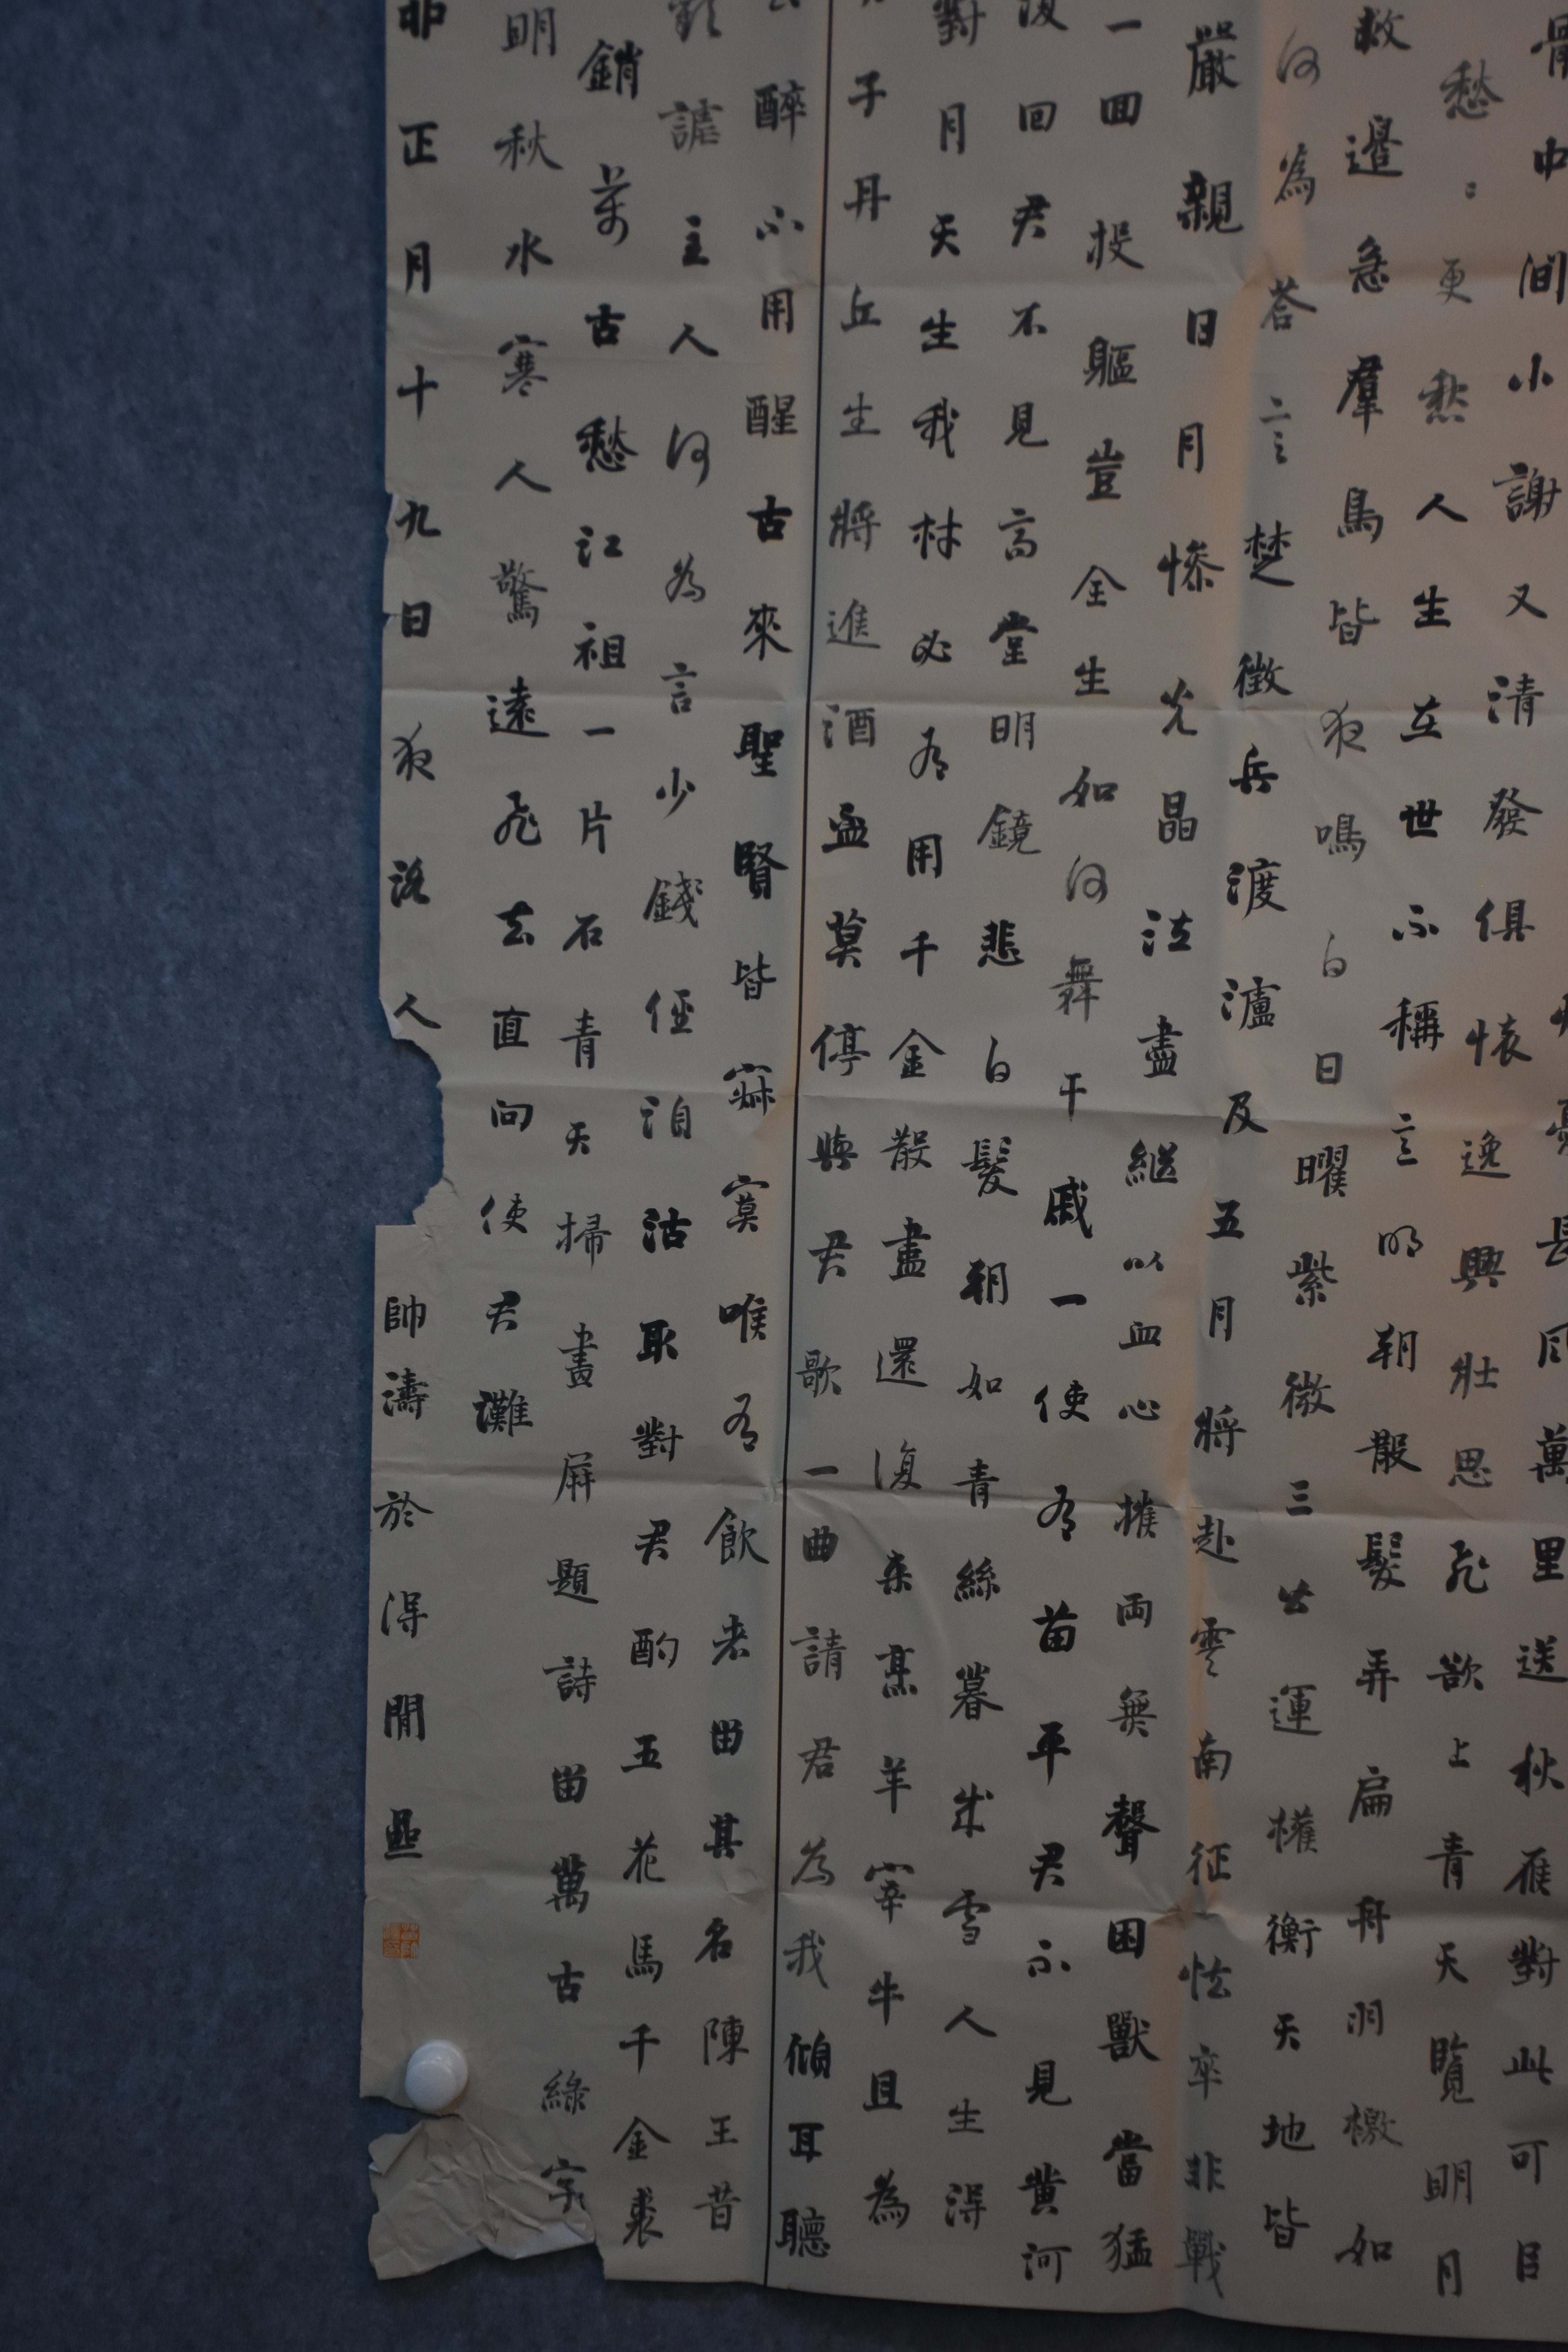 長風萬里送秋雁對此可
骨中間小謝又清發俱懷逸興壯思飛欲上青天覽明月
愁更愁人生在世不稱意明朝散髮弄扁舟羽檄如
救邊急羣馬皆夜鳴白日曜紫微三公運權衡天地皆
何為答言楚徵兵渡瀘及五月將赴雲南征怯卒非戰
嚴親日月慘光晶泣盡繼以血心摧兩無聲困獸當猛
一回投軀豈全生如何舞干戚一使有苗平君不見黃河
復回君不見高堂明鏡悲白髮朝如青絲暮成雪人生得
對月天生我材必有用千金散盡還復來烹羊宰牛且為
子丹丘生將進酒盃莫停與君歌一曲請君為我傾耳聽
醉不用醒古來聖賢皆寂寞唯有飲者留其名陳王昔
歡謔主人何為言少錢徑須沽取對君酌五花馬千金裘
銷萬古愁江祖一片石青天掃畫屏題詩留萬古綠字
明秋水寒人驚遠飛去直向使君灘
正月十九日夜洛人帥濤於得閒